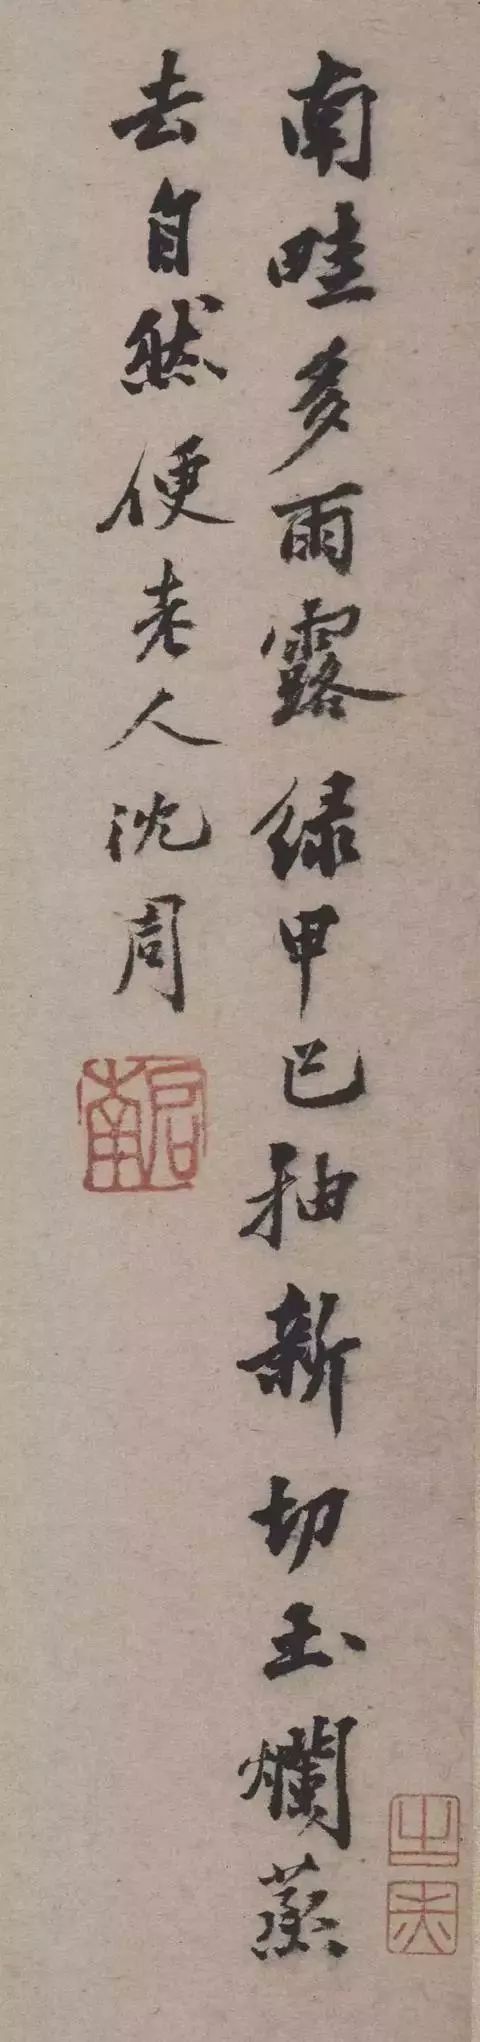 南畦多雨露綠甲已抽新切玉爛蒸
去自然便老人沈周
启南